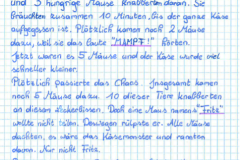 und 3 hungrige Mäuse knabberten daran. Sie
brauchten zusammen 10 Minuten, bis der ganze Käse
aufgegessen ist. Plötzlich kamen noch 2 Mäuse
dazu, weil sie das laute "MAMPF!" hörten.
Jetzt waren es 5 Mäuse und der Käse wurde viel
schneller kleiner.
Plötzlich passierte das Chaos. Insgesamt kamen
noch 5 Mäuse dazu. 10 dieser Tiere knabberten
an diesem Leckerbissen. Doch eine Maus namens "Fritz"
wollte nicht teilen. Deswegen rülpste er. Alle Mäuse
dachten, es wäre das Käsemonster und rannten
davon. Nur nicht Fritz.